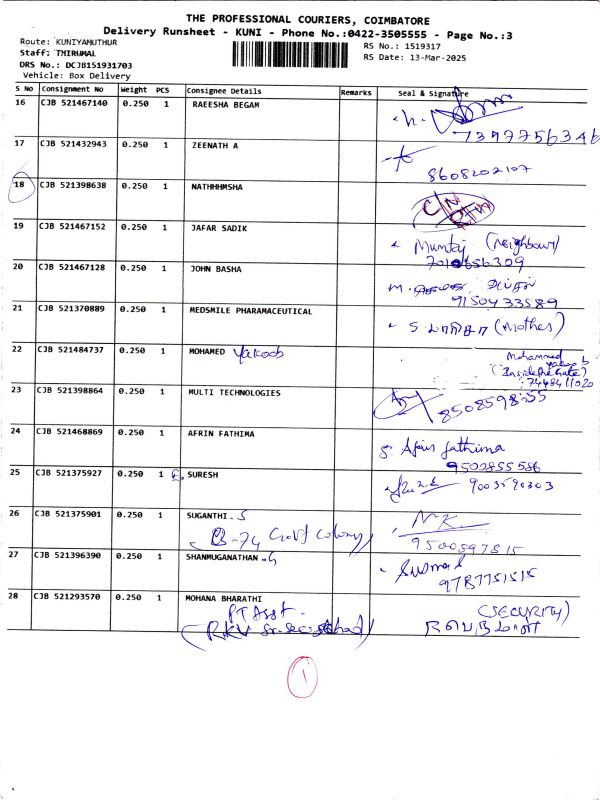 THE PROFESSIONAL COURIERS, COIMBATORE
Delivery Runsheet - KUNI - Phone No.:0422-3505555 - Page No.:3
Route: KUNIYAMUTHUR
RS No.: 1519317
Staff: THIRUMAL
RS Date: 13-Mar-2025
DRS No.: DCJB151931703
Vehicle: Box Delivery
S No Consignment No Weight PCS Consignee Details Remarks Seal & Signature
16 CJB 521467140 0.250 1 RAEESHA BEGAM
7397756346
17 CJB 521432943 0.250 1 ZEENATH A
8608202107
18 CJB 521398638 0.250 1 NATHHHMSHA
19 CJB 521467152 0.250 1 JAFAR SADIK
Mumtaj (Neighbour)
7010656309
20 CJB 521467128 0.250 1 JOHN BASHA
9150433589
21 CJB 521370889 0.250 1 MEDSMILE PHARAMACEUTICAL
(Mother)
22 CJB 521484737 0.250 1 MOHAMED Yakoob
Mohammed
Yakoob
(Inside the Gate)
7448411020
23 CJB 521398864 0.250 1 MULTI TECHNOLOGIES
8508598555
24 CJB 521468869 0.250 1 AFRIN FATHIMA
S. Afrin fathima
9500855586
25 CJB 521375927 0.250 1 E. SURESH
9003590303
26 CJB 521375901 0.250 1 SUGANTHI. S
B-74 Govt Colony
9500597515
27 CJB 521396390 0.250 1 SHANMUGANATHAN. G
9787751515
28 CJB 521293570 0.250 1 MOHANA BHARATHI
PT Asst.
(SECURITY)
(RKV Sr. Sec. School)
1